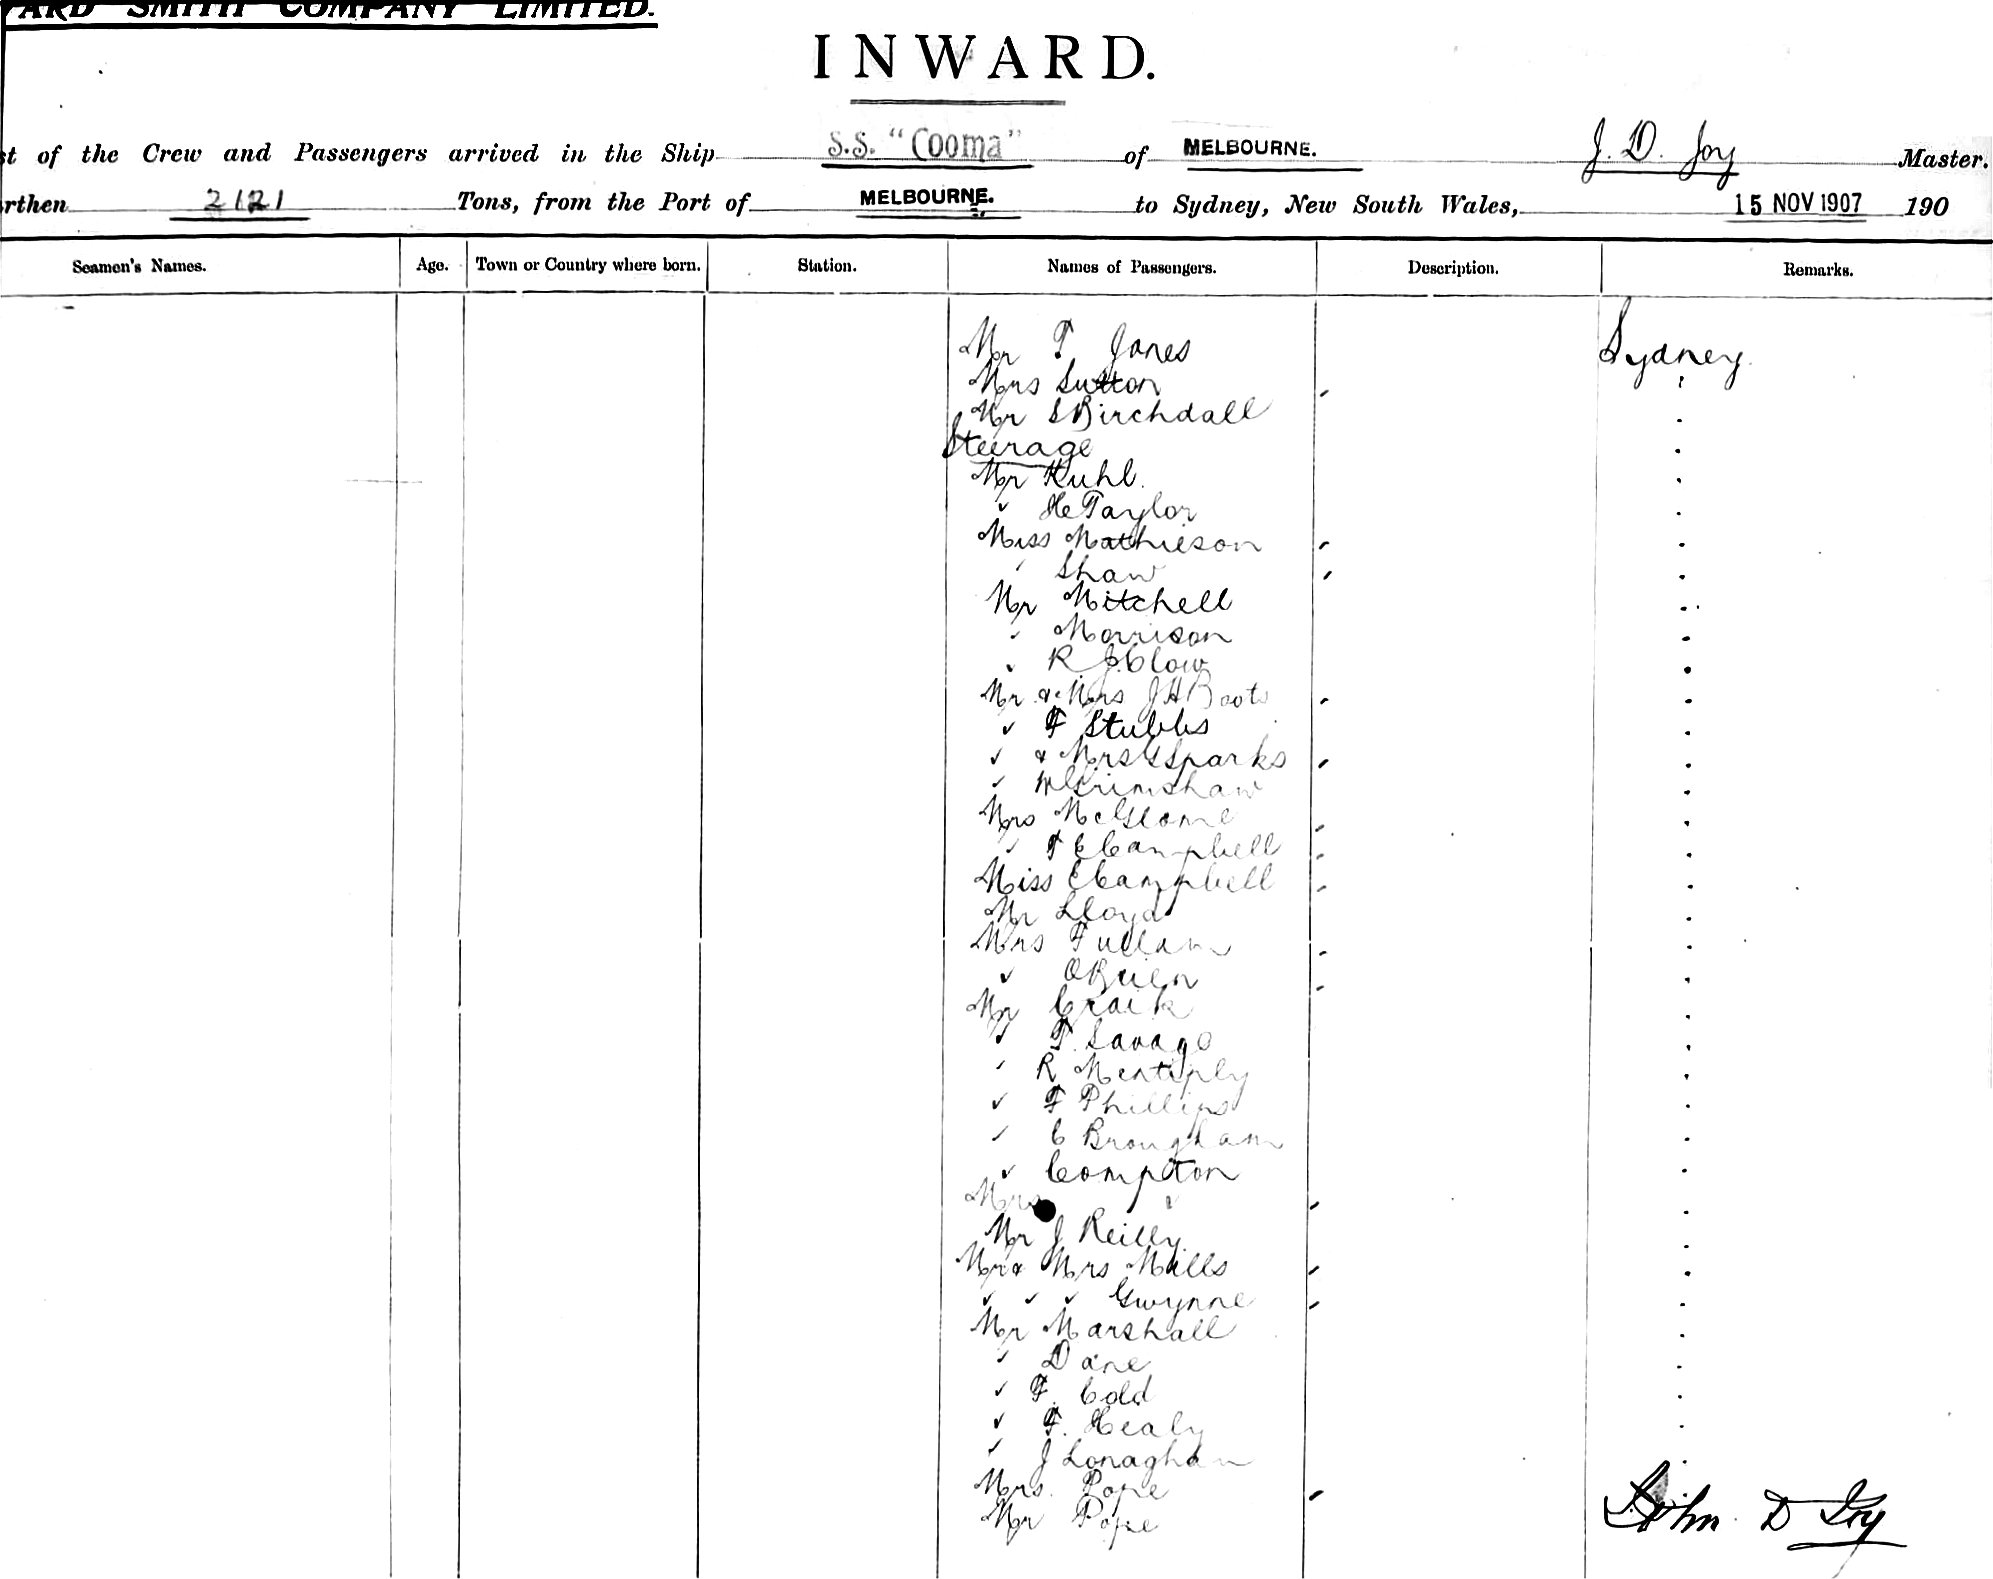 ARD SMITH COMPANY LIMITED.
INWARD.
st of the Crew and Passengers arrived in the Ship S.S. "Cooma" of MELBOURNE. J. D. Joy Master.
rthen 2121 Tons, from the Port of MELBOURNE. to Sydney, New South Wales, 15 NOV 1907 190
Seamen's Names. Age. Town or Country where born. Station. Names of Passengers. Description. Remarks.
Mr T Jones Sydney
Mrs Sutton
Mr S Birchdall
Steerage
Mr Kuhl.
✓ He Taylor
Miss Mathieson
' Shaw
Mr Mitchell
✓ Morrison
✓ R J Clow
Mr & Mrs J H Boots
✓ F Stubbs
✓ & Mrs G Sparks
✓ W Grimshaw
Mrs McGlone
✓ T E Campbell
Miss E Campbell
Mr Lloyd
Mrs Fullam
✓ O'Brien
Mr Craik
✓ T. Savage
' R Mentiply
✓ F Phillips
✓ C Brougham
✓ Compton
Mrs
Mr J Reilly
Mr & Mrs Mills
✓ ✓ ✓ Gwynne
Mr Marshall
✓ Dane
✓ F. Cold
✓ F. Healy
✓ J Lonaghan
Mrs. Pope
Mr Pope
John D Joy